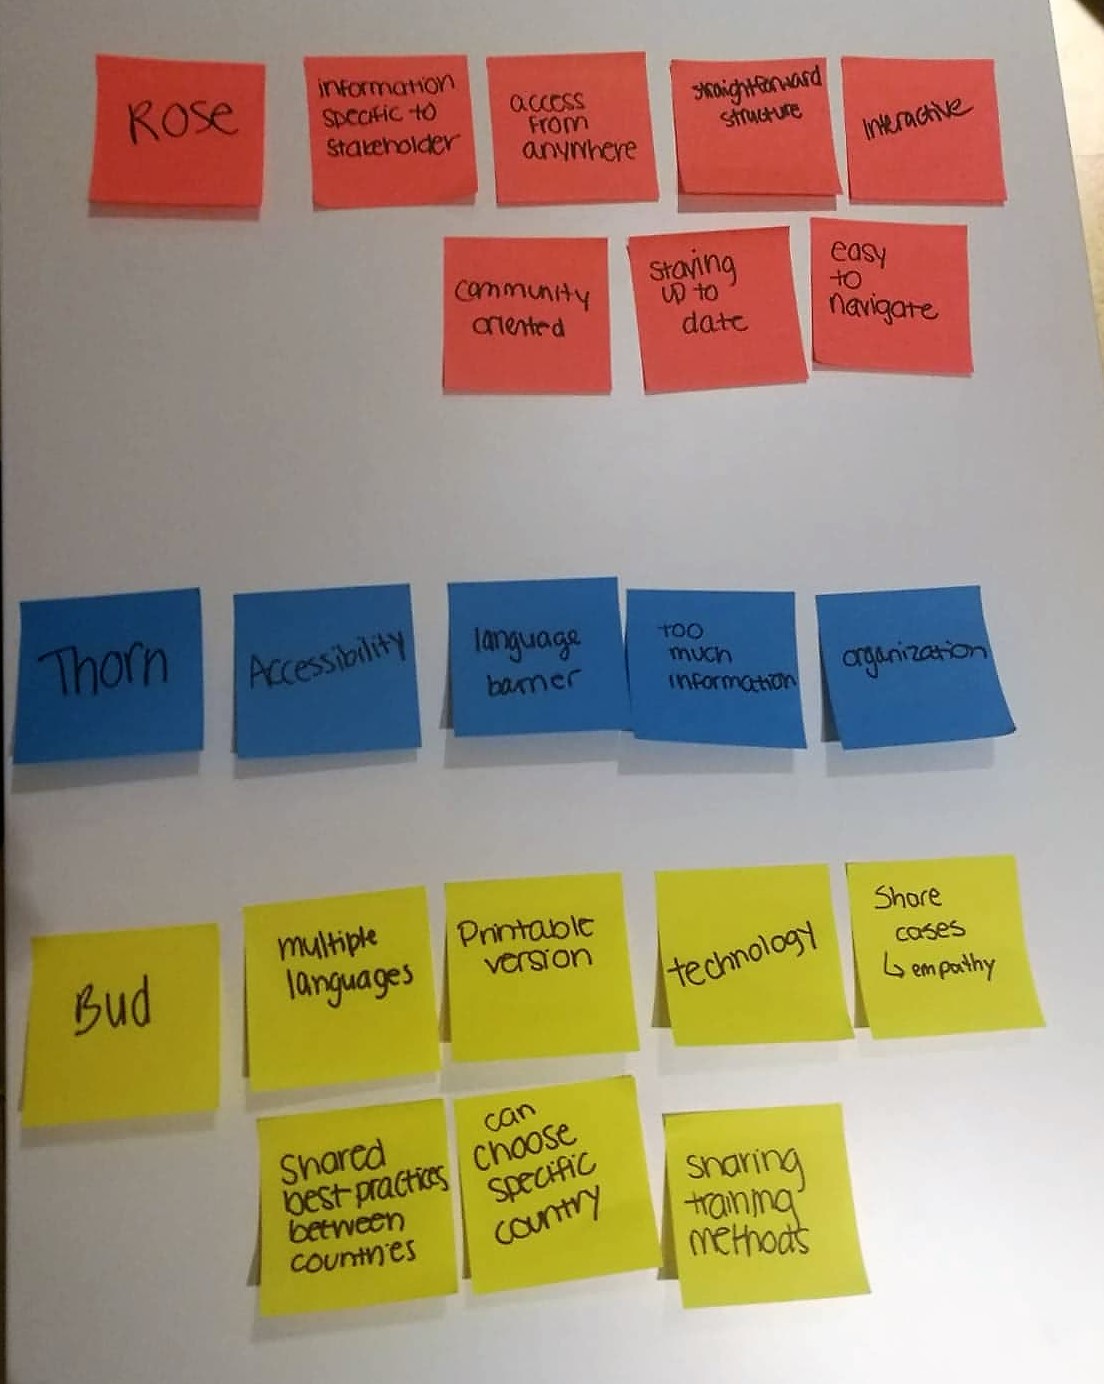 Rose
information
specific to
stakeholder
access
from
anywhere
straightforward
structure
interactive
community
oriented
staying
up to
date
easy
to
navigate
Thorn
Accessibility
language
barrier
too
much
information
organization
Bud
multiple
languages
Printable
version
technology
Share
cases
↳ empathy
Shared
best practices
between
countries
can
choose
specific
country
sharing
training
methods